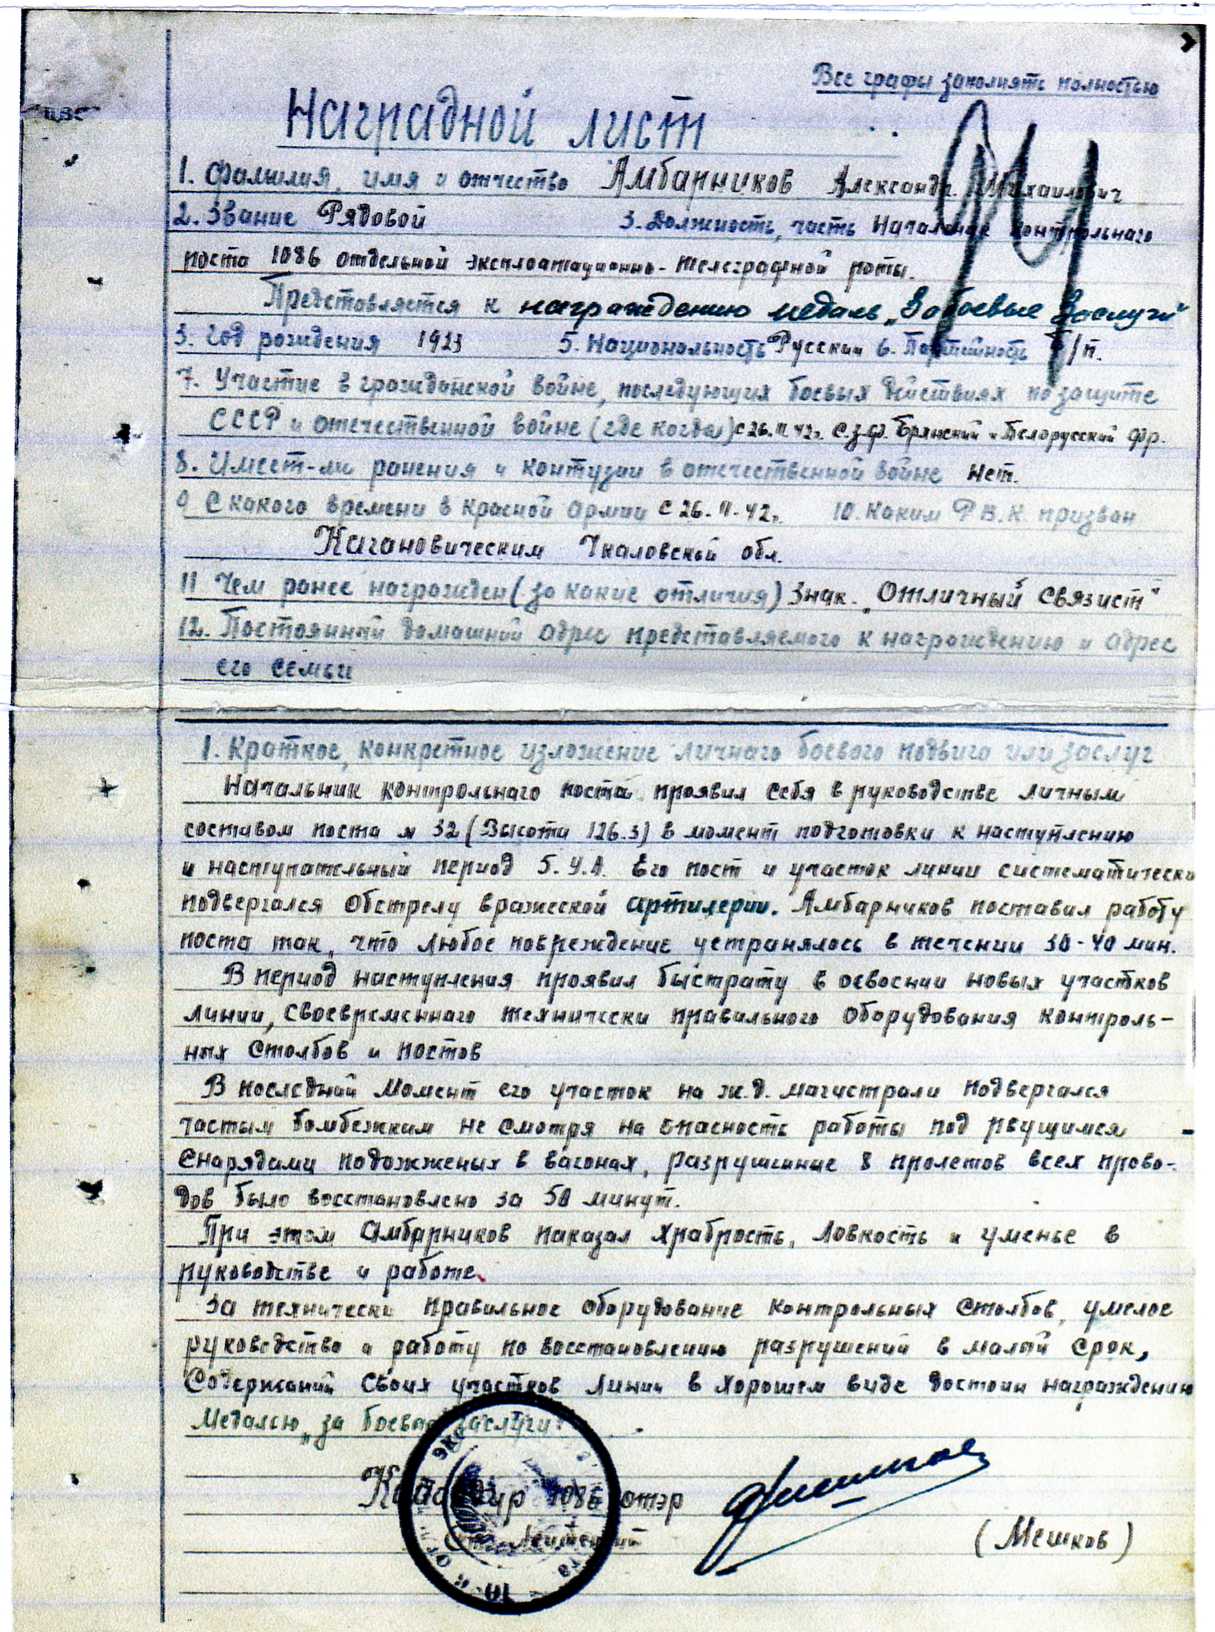 Все графы заполнять полностью
Наградной лист
1. Фамилия, имя и отчество Амбарников Александр. Михаилович
2. Звание Рядовой 3. Должность, часть Начальник контрольнаго
поста 1086 отдельной эксплоатационно-телеграфной роты.
Представляется к награждению медаль „За боевые Заслуги"
3. Год рождения 1923 5. Национальность Русский 6. Партийность Б/п.
7. Участие в гражданской войне, последующих боевых действиях по защите
СССР и отечественной войне (где когда) с 26.II.42г. С.з.ф. Брянский и Белорусский фр.
8. Имеет-ли ранения и контузии в отечественной войне Нет.
9 С какого времени в Красной Армии с 26.II.42г. 10. Каким Р.В.К призван
Кагановическим Чкаловской обл.
11 Чем ранее награжден (за какие отличия) Знак. „Отличный Связист"
12. Постоянный домашний адрес представляемого к награждению и адрес
его семьи
1. Краткое, конкретное изложение личнаго боевого подвига или заслуг
Начальник контрольнаго поста проявил себя в руководстве личным
составом поста № 32 (Высота 126.3) в момент подготовки к наступлению
и наступательный период 5.У.А. Его пост и участок линии систематически
подвергался обстрелу вражеской артилерии. Амбарников поставил работу
поста так, что любое повреждение устранялось в течении 30-40 мин.
В период наступления проявил быстрату в освоении новых участков
линии, своевременнаго технически правильного оборудования контроль-
ных столбов и постов
В последний момент его участок на ж.д. магистрали подвергался
частым бомбежкам не смотря на опасность работы под рвущимися
снарядами подожженых в вагонах, разрушение 8 пролетов всех прово-
дов было восстановлено за 50 минут.
При этом Амбарников паказал храбрость, ловкость и уменье в
руководстве и работе.
За технически правильное оборудование контрольных столбов, умелое
руководство и работу по восстановлению разрушений в малый срок,
Содержаний своих участков линии в хорошем виде достоин награждению
Медалью „за боевые заслуги"
Командир 1086 отэр
Ст. Лейтенант
(Мешков)